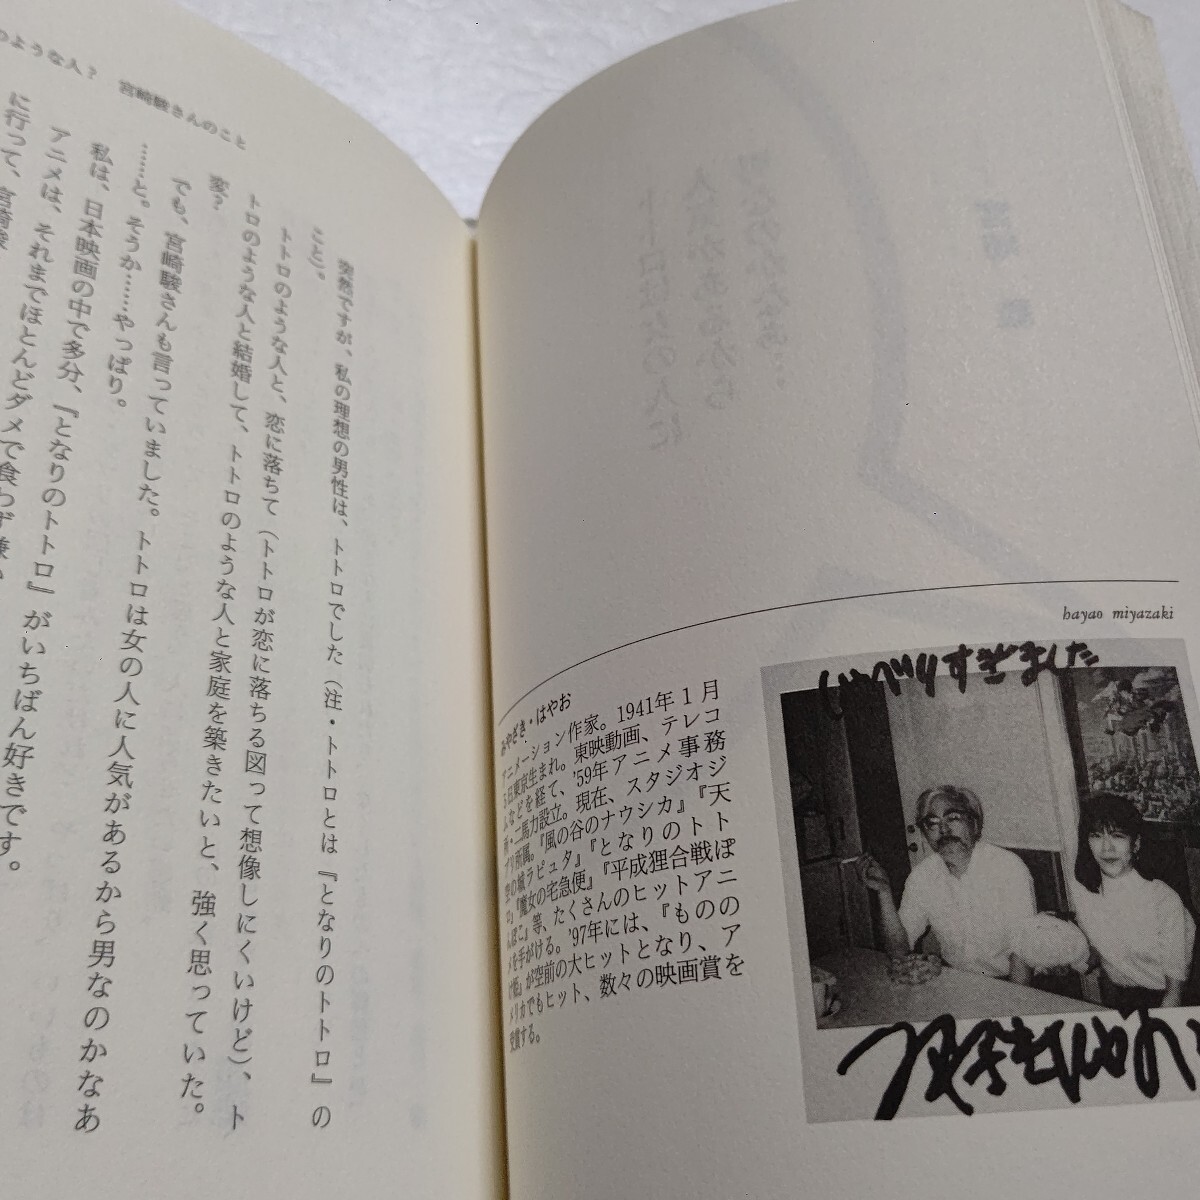 のような人？　宮崎駿さんのこと
突然ですが、私の理想の男性は、トトロでした（注・トトロとは『となりのトトロ』の
こと）。
トトロのような人と、恋に落ちて（トトロが恋に落ちる図って想像しにくいけど）、ト
トロのような人と結婚して、トトロのような人と家庭を築きたいと、強く思っていた。
変？
でも、宮崎駿さんも言っていました。トトロは女の人に人気があるから男なのかなあ
……と。そうか……やっぱり。
私は、日本映画の中で多分、『となりのトトロ』がいちばん好きです。
アニメは、それまでほとんどダメで食わず嫌い
に行って、宮崎駿
hayao miyazaki
しゃべりすぎました
みやざき・はやお
アニメーション作家。1941年1月
5日東京生まれ。東映動画、テレコ
ムなどを経て、'59年アニメ事務
所・二馬力設立。現在、スタジオジ
ブリ所属。『風の谷のナウシカ』『天
空の城ラピュタ』『となりのトト
ロ』『魔女の宅急便』『平成狸合戦ぽ
んぽこ』等、たくさんのヒットアニ
メを手がける。'97年には、『ものの
け姫』が空前の大ヒットとなり、ア
メリカでもヒット、数々の映画賞を
受賞する。